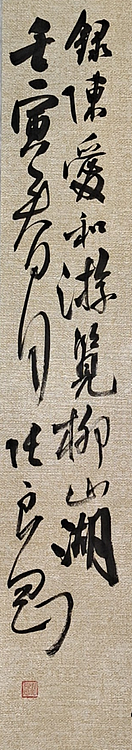 錄陳愛和游覽柳山湖
壬寅春月 张良